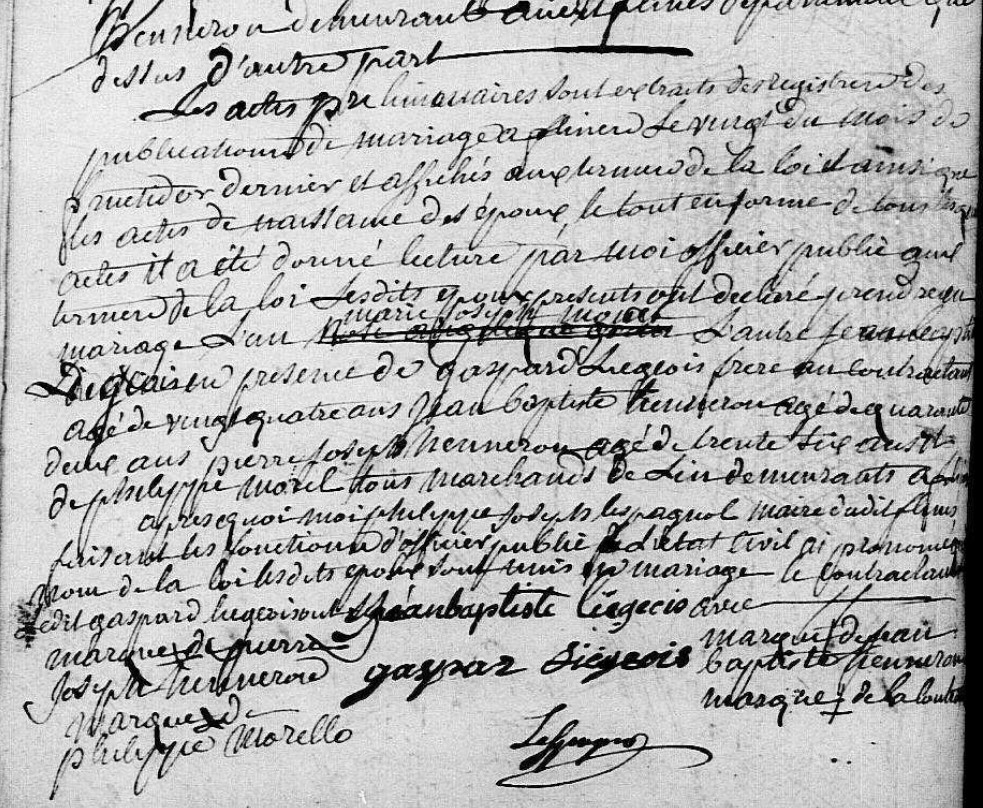 henneron demeurant audit flines département que
dessus d'autre part
Les actes preliminaires sont extraits des registres des
publications de mariage a flines Le vingt du mois de
fructidor dernier et affichés aux termes de la loi et ainsi que
les actes de naissance des époux, le tout en forme de tous lesquels
actes il a été donné lecture par moi officier public aux
termes de la loi Lesdits epoux presents ont declaré prendre en
marie joseph
mariage L'un L'autre jean baptiste
Liegeois en presence de gaspard Liegeois frere au contractant
agé de vingt quatre ans jean baptiste henneron agé de quarante
deux ans pierre joseph henneron agé de trente six ans et
de philippe morel tous marchands de Lin demeurants a flines
apres quoi moi philippe joseph lespagnol maire dudit flines
faisant les fonctions d'officier public de l'état civil ai prononcé au
nom de la loi lesdits epoux sont unis en mariage le contractant
edit gaspard liegeois ont jeanbaptiste liegeois avec
marque de pierre marque de jean
joseph henneron gaspar liegeois baptiste henneron
marque de marque de la contra
philippe morelle